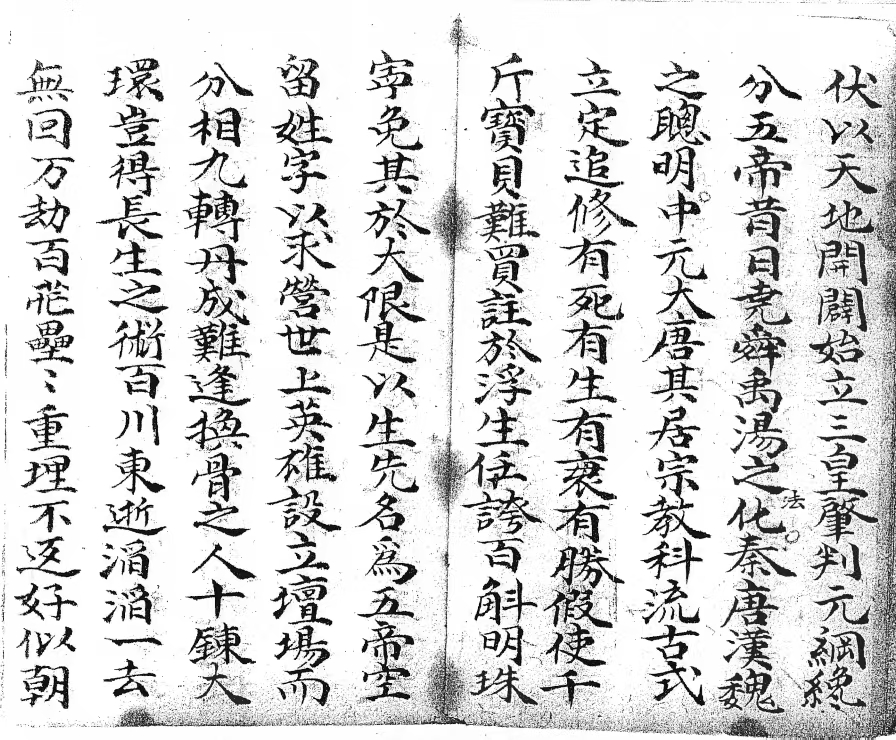 伏以天地開闢始立三皇肇判元綱纔
分五帝昔日堯舜禹湯之化法秦唐漢魏
之聰明中元大唐其居宗教科流古式
立定追修有死有生有衰有勝假使千
斤寶貝難買註於浮生任誇百斛明珠
寧免其於大限是以生先名爲五帝空
留姓字以求營世上英雄設立壇場而
分相九轉丹成難逢換骨之人十鍊大
環豈得長生之術百川東逝滔滔一去
無回万劫百壘〻重埋不返好似朝